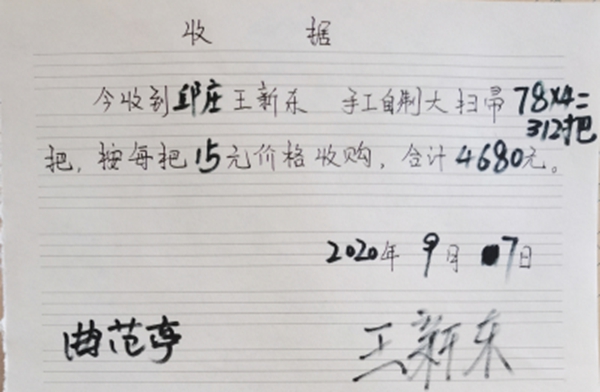 收 据
今收到邱庄王新东 手工自制大扫帚78×4=
312把
把，按每把15元价格收购，合计4680元。
2020年 9月 7日
曲范亭 王新东